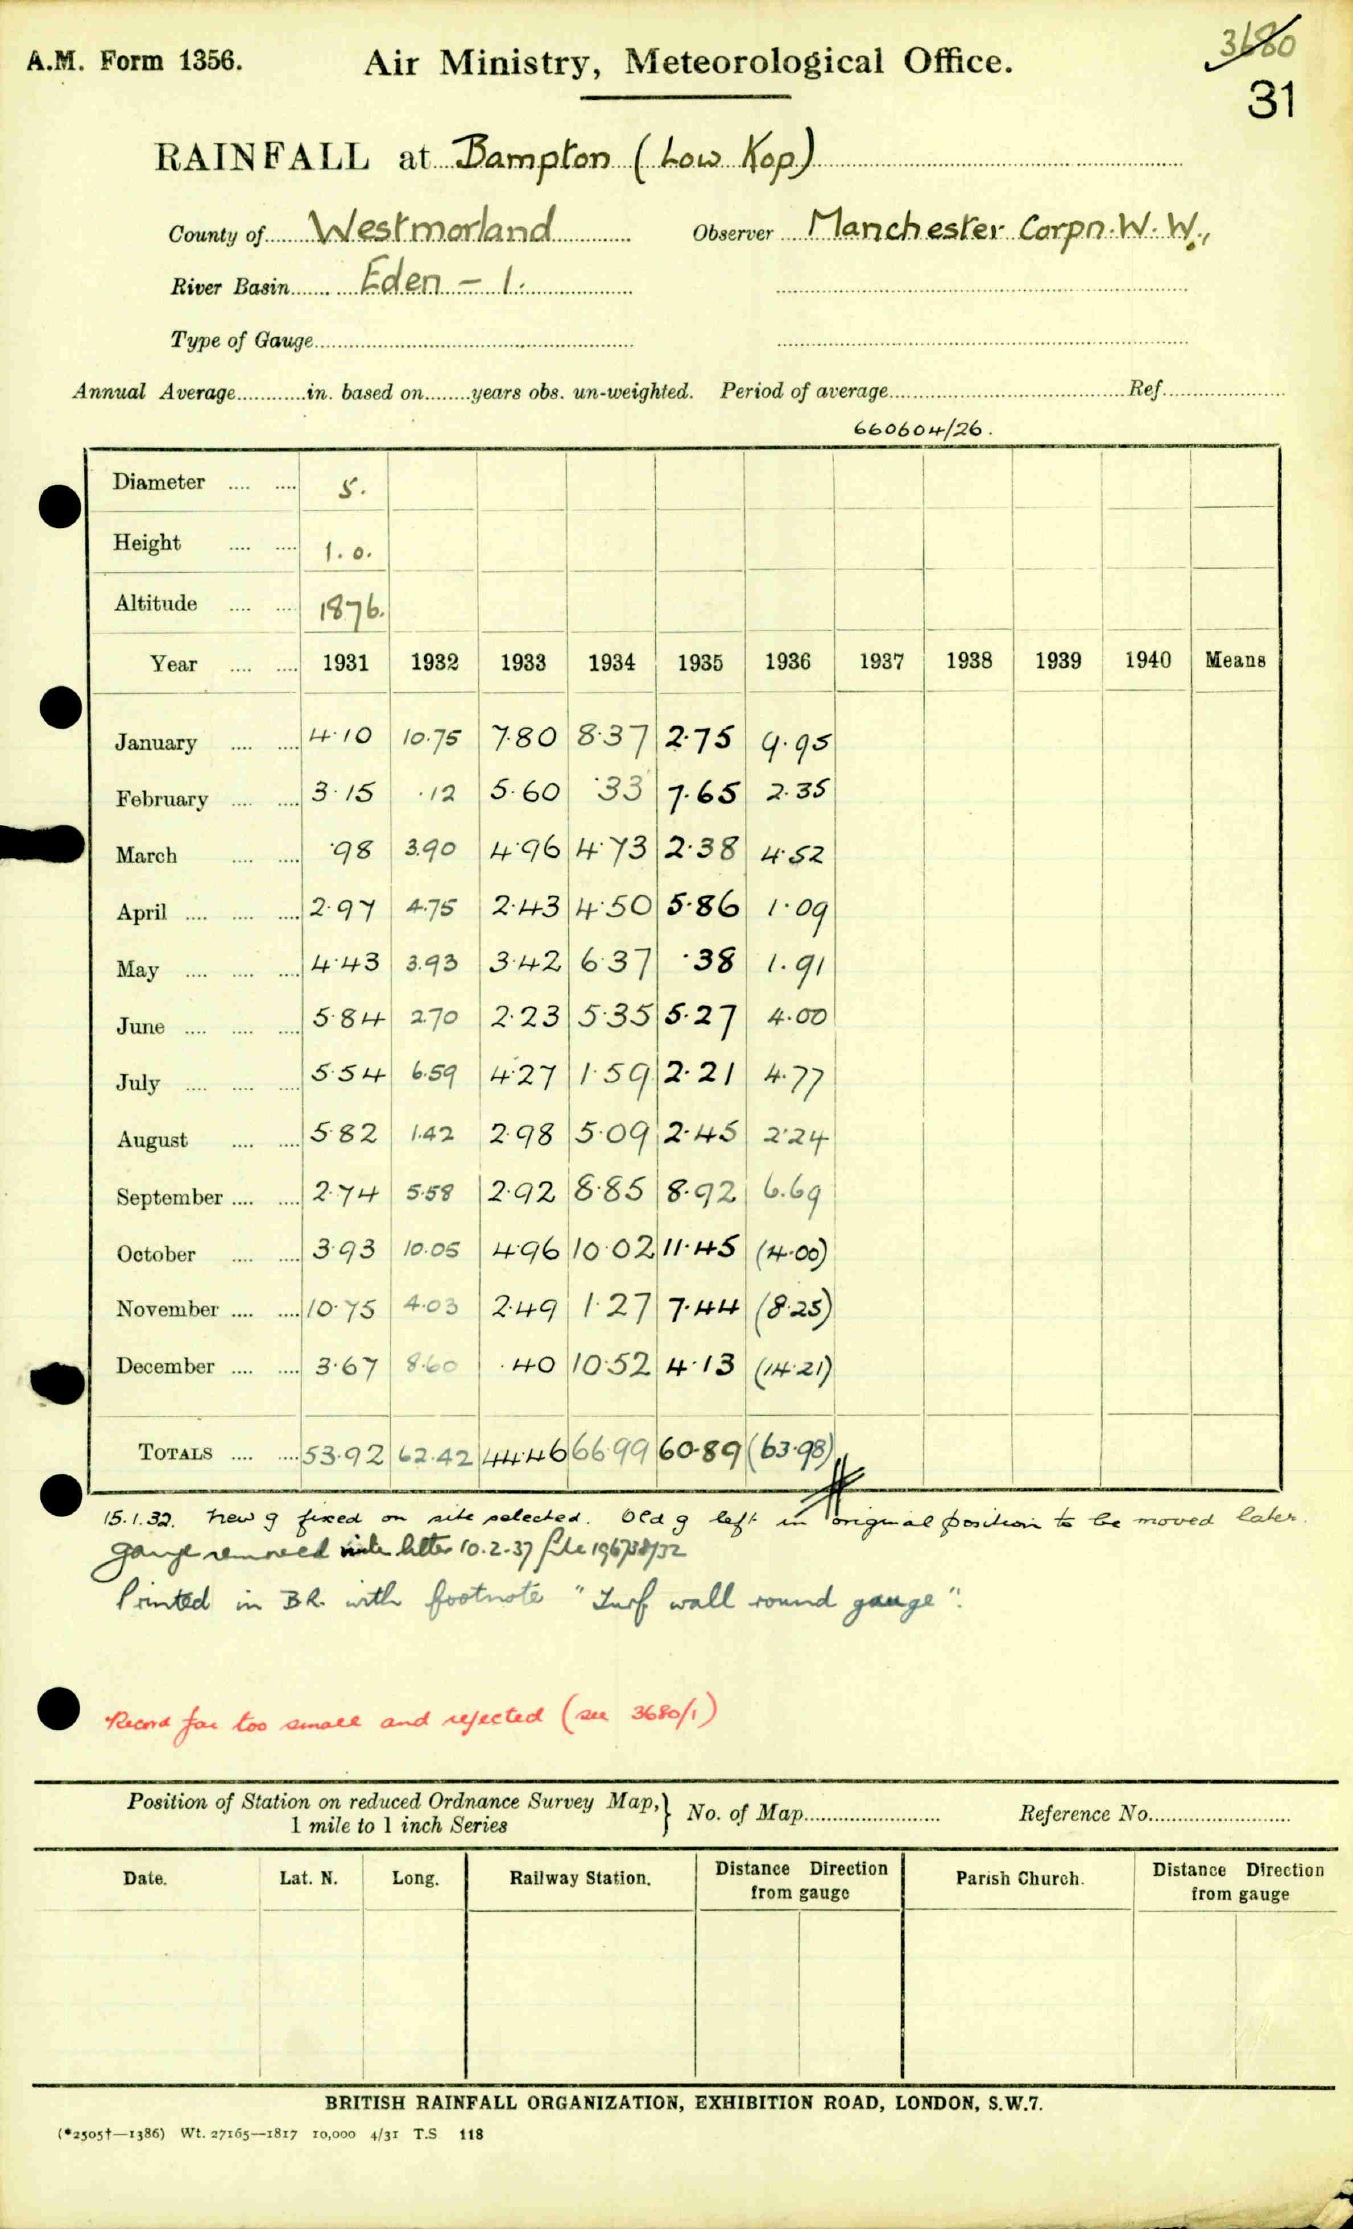 3680
A.M. Form 1356.
Air Ministry, Meteorological Office.
31
RAINFALL at Bampton (Low Kop)
County of Westmorland Observer Manchester Corpn. W. W.,
River Basin Eden – 1.
Type of Gauge
Annual Average in. based on years obs. un-weighted. Period of average Ref.
660604/26.
Diameter 5.
Height 1.0.
Altitude 1876.
Year 1931 1932 1933 1934 1935 1936 1937 1938 1939 1940 Means
January 4·10 10·75 7·80 8·37 2·75 9·95
February 3·15 ·12 5·60 ·33 7·65 2·35
March ·98 3.90 4·96 4·73 2·38 4·52
April 2·97 4.75 2·43 4·50 5·86 1·09
May 4·43 3.93 3·42 6·37 ·38 1·91
June 5·84 2.70 2·23 5·35 5·27 4·00
July 5·54 6·59 4·27 1·59 2·21 4·77
August 5·82 1.42 2·98 5·09 2·45 2·24
September 2·74 5·58 2·92 8·85 8·92 6·69
October 3·93 10·05 4·96 10·02 11·45 (4·00)
November 10·75 4·03 2·49 1·27 7·44 (8·25)
December 3·67 8·60 ·40 10·52 4·13 (14·21)
TOTALS 53·92 62·42 44·46 66·99 60·89 (63·98)
15.1.32. New g fixed on site selected. Old g left in original position to be moved later.
Gauge removed vide letter 10.2.37 file 196738/32
Printed in B.R. with footnote "Turf wall round gauge".
Record far too small and rejected (see 3680/1)
Position of Station on reduced Ordnance Survey Map,} No. of Map Reference No.
1 mile to 1 inch Series
Date. Lat. N. Long. Railway Station. Distance Direction from gauge Parish Church. Distance Direction from gauge
BRITISH RAINFALL ORGANIZATION, EXHIBITION ROAD, LONDON, S.W.7.
(*2505†—1386) Wt. 27165—1817 10,000 4/31 T.S 118